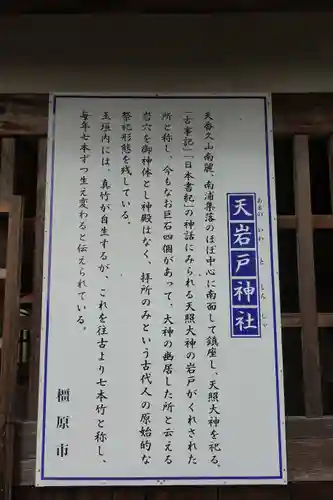 天岩戸神社
あまの いわ と じん じゃ
天香久山南麓、南浦集落のほぼ中心に南面して鎮座し、天照大神を祀る。
「古事記」「日本書紀」の神話にみられる天照大神の岩戸がくれされた
所と称し、今もなお巨石四個があって、大神の幽居した所と云える
岩穴を御神体とし神殿はなく、拝所のみという古代人の原始的な
祭祀形態を残している。
玉垣内には、真竹が自生するが、これを往古より七本竹と称し、
毎年七本ずつ生え変わると伝えられている。
橿原市